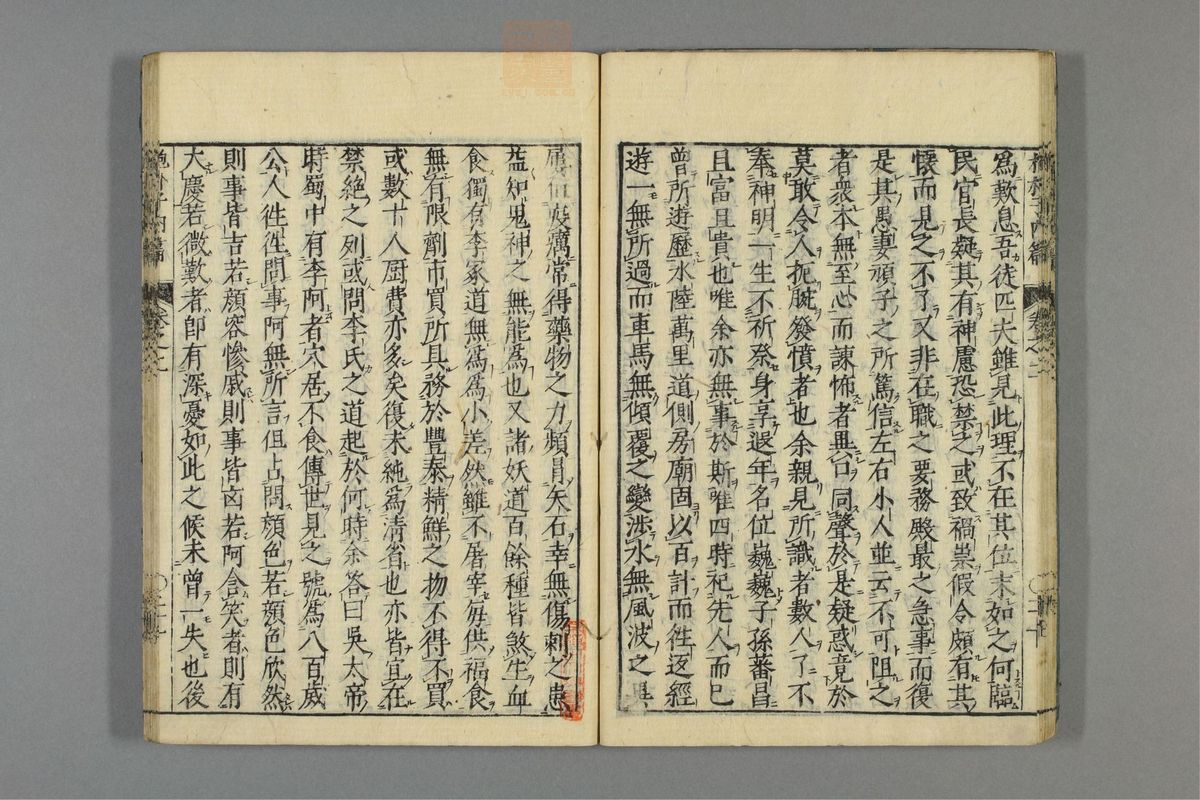 爲歎息吾徒匹夫雖見此理不在其位末如之何臨
民官長疑其有神慮恐禁之或致禍祟假令頗有其
懷而見之不了又非在職之要務殿最之急事而復
是其愚妻頑子之所篤信左右小人並云不可阻之
者衆本無至心而諫怖者異口同聲於是疑惑竟於
莫敢令人扼腕發憤者也余親見所識者數人了不
奉神明一生不祈祭身享遐年名位巍巍子孫蕃昌
且富且貴也唯余亦無事於斯唯四時祀先人而已
曾所遊歷水陸萬里道側房廟固以百計而徃返經
遊一無所過而車馬無傾覆之變涉水無風波之異
屢値疫癘常得藥物之力頻冒矢石幸無傷刺之患
益知鬼神之無能爲也又諸妖道百餘種皆煞生血
食獨有李家道無爲爲小差然雖不屠宰毎供福食
無有限劑市買所具務於豐泰精鮮之物不得不買
或數十人厨費亦多矣復未純爲淸省也亦皆宜在
禁絶之列或問李氏之道起於何時余荅曰吳太帝
時蜀中有李阿者穴居不食傳世見之號爲八百歲
公人徃徃問事阿無所言但占問顏色若顏色欣然
則事皆吉若顏容慘戚則事皆凶若阿含笑者則有
大慶若微歎者卽有深憂如此之候未曾一失也後